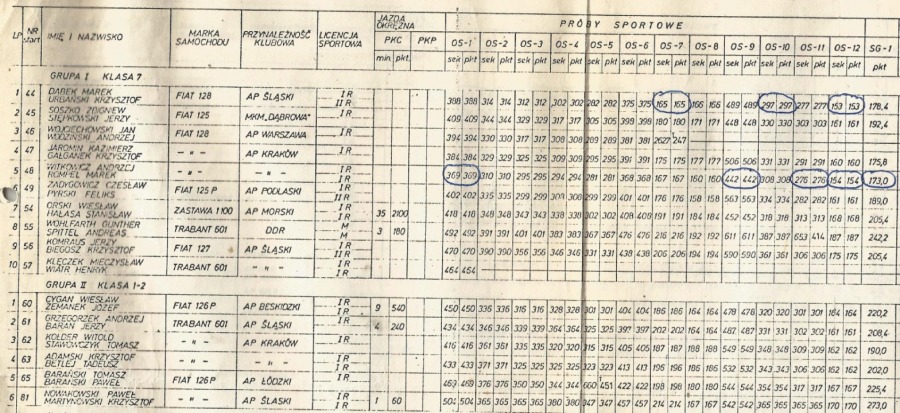 JAZDA OKRĘŻNA PRÓBY SPORTOWE
LP NR start IMIĘ I NAZWISKO MARKA SAMOCHODU PRZYNALEŻNOŚĆ KLUBOWA LICENCJA SPORTOWA PKC PKP OS-1 OS-2 OS-3 OS-4 OS-5 OS-6 OS-7 OS-8 OS-9 OS-10 OS-11 OS-12 SG-1
min. pkt. sek pkt sek pkt sek pkt sek pkt sek pkt sek pkt sek pkt sek pkt sek pkt sek pkt sek pkt sek pkt pkt
GRUPA I KLASA 7
1 44 DĄBEK MAREK FIAT 128 AP ŚLĄSKI I R
URBAŃSKI KRZYSZTOF II R 388 388 314 314 312 312 302 302 282 282 375 375 165 165 166 166 489 489 297 297 277 277 153 153 178,4
2 45 SOSZKO ZBIGNIEW FIAT 125 MKM,DĄBROWA" I R
STĘPKOWSKI JERZY II R 409 409 344 344 329 329 317 317 305 305 398 398 180 180 171 171 448 448 330 330 303 303 161 161 192,4
3 46 WOJCIECHOWSKI JAN FIAT 128 AP WARSZAWA I R
WODZIŃSKI ANDRZEJ II R 394 394 330 330 317 317 308 308 289 289 381 381 2627 247
4 47 JAROMIN KAZIMIERZ -"- AP KRAKÓW I R
GAŁGANEK KRZYSZTOF I R 384 384 329 329 325 325 309 309 295 295 391 391 175 175 177 177 506 506 331 331 291 291 160 160 175,8
5 48 WITKOWICZ ANDRZEJ -"- -"- I R
ROMPEL MAREK I R 369 369 310 310 295 295 294 294 281 281 368 368 167 167 160 160 442 442 308 308 276 276 154 154 173,0
6 49 ZADYGOWICZ CZESŁAW FIAT 125 P AP PODLASKI I R
PYRSKI FELIKS II R 402 402 335 335 299 299 309 309 299 299 401 401 176 176 158 158 563 563 334 334 282 282 161 161 189,0
7 54 ORSKI WIESŁAW ZASTAWA 1100 AP MORSKI I R 35 2100
HAŁASA STANISŁAW I R 418 418 348 348 343 343 338 338 302 302 408 408 191 191 184 184 452 452 318 318 313 313 168 168 205,4
8 55 WOHLFARTH GUNTHER TRABANT 601 DDR M 3 180
SPITTEL ANDREAS M 492 492 391 391 401 401 383 383 367 367 476 476 216 216 192 192 611 611 387 387 653 414 187 187 242,2
9 56 KOMRAUS JERZY FIAT 127 AP ŚLĄSKI I R
BIEGOSZ KRZYSZTOF II R 470 470 390 390 356 356 346 346 331 331 438 438 206 206 194 194 590 590 361 361 306 306 175 175 205,4
10 57 KLĘCZEK MIECZYSŁAW TRABANT 601 -"- I R
WIATR HENRYK I R 454 454
GRUPA II KLASA 1-2
1 60 CYGAN WIESŁAW FIAT 126P AP BESKIDZKI I R 9 540
ŻEMANEK JÓZEF I R 450 450 336 336 316 316 328 328 301 301 404 404 186 186 164 164 478 478 320 320 301 301 184 164 220,2
2 61 GRZEGORZEK ANDRZEJ TRABANT 601 AP ŚLĄSKI I R 4 240
BARAN JERZY I R 434 434 346 346 339 339 364 364 325 325 397 397 202 202 164 164 487 487 331 331 302 302 161 161 208,4
3 62 KOŁDER WITOLD -"- AP KRAKÓW I R
STAWOWCZYK TOMASZ I R 416 416 361 361 335 335 320 320 315 315 405 405 187 187 188 188 549 549 348 348 309 309 162 162 190,0
4 63 ADAMSKI KRZYSZTOF -"- -"- I R
BETLEJ TADEUSZ II R 433 433 371 371 325 325 325 325 323 323 413 413 195 195 186 186 532 532 343 343 306 306 162 162 202,0
5 65 BARAŃSKI TOMASZ FIAT 126P AP ŁÓDZKI I R
BARAŃSKI PAWEŁ I R 469 469 376 376 350 350 344 344 660 451 422 422 198 198 180 180 544 544 354 354 317 317 167 167 225,4
6 81 NOWAKOWSKI PAWEŁ -"- AP ŚLĄSKI I R 1 60
MARTYNOWSKI KRZYSZTOF I R 504 504 365 365 365 365 380 380 347 347 457 457 214 214 167 167 542 542 365 365 365 365 170 170 273,0